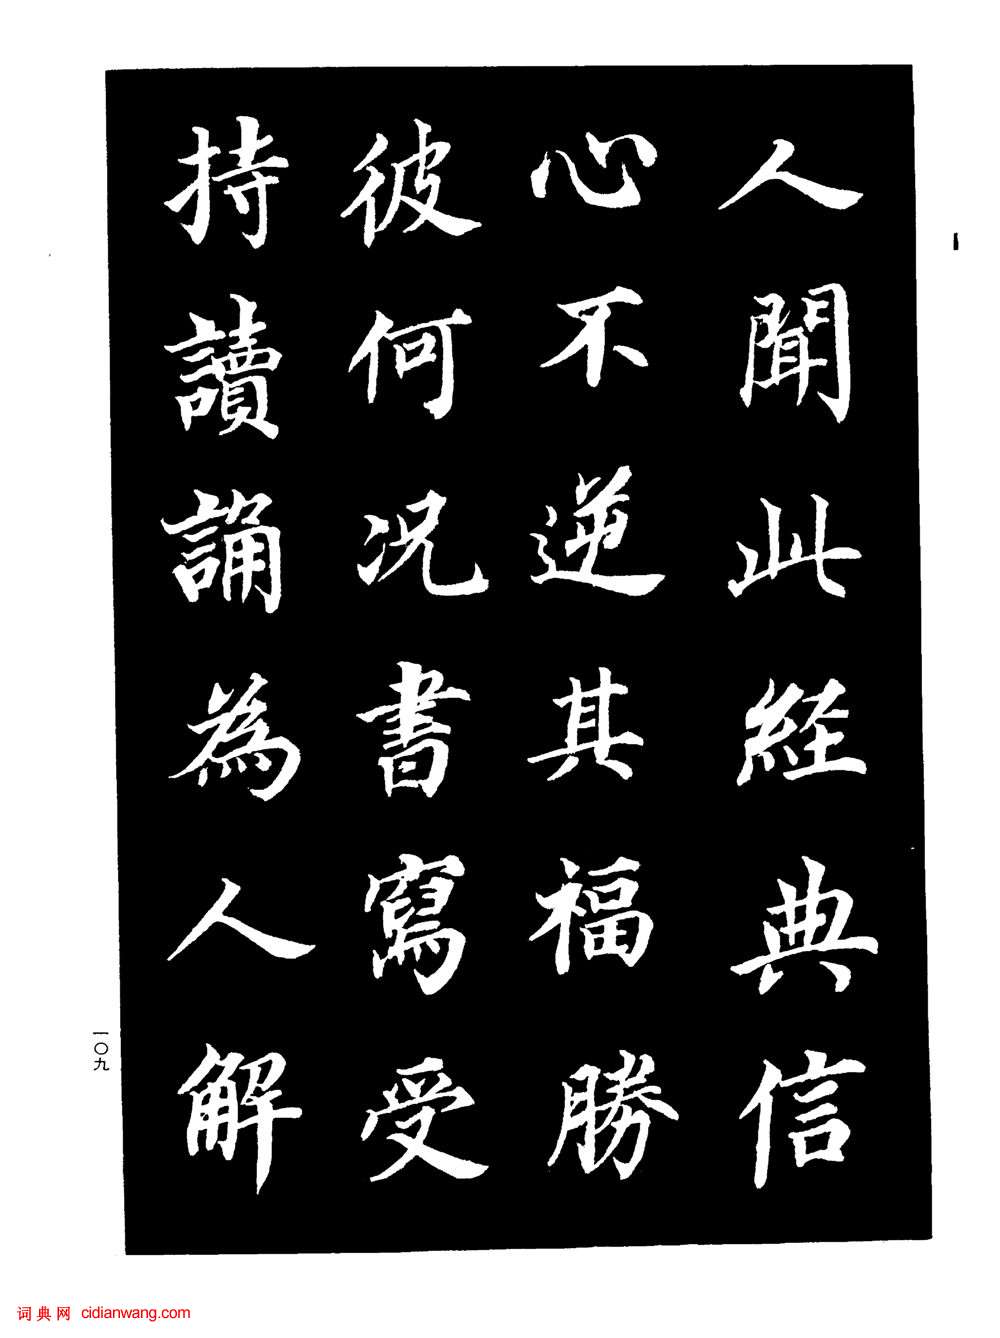 人聞此経典信
心不逆其福勝
彼何況書寫受
持讀誦為人解
一〇九
词典网 cidianwang.com